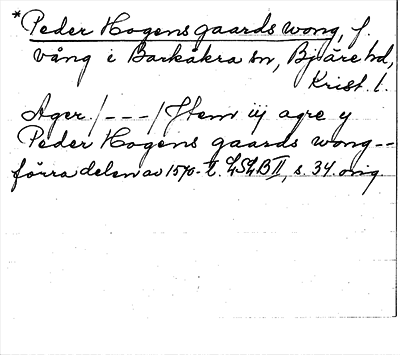 *Peder Hogens gaards wong, f.
vång i Barkåkra sn, Bjäre hd,
Krist. l.
Ager /---/ Item iij agre y
Peder Hogens gaards wong --
förra delen av 1570-t. LSLB II, s. 34. orig.